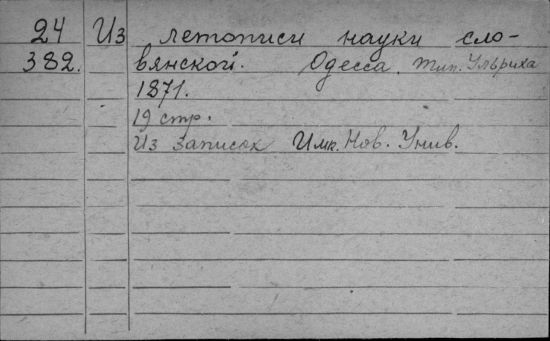 24 Из летописи науки сло-
382. вянской. Одесса. тип. Ульриха
1871.
19 стр.
Из записок Имп. Нов. Унив.